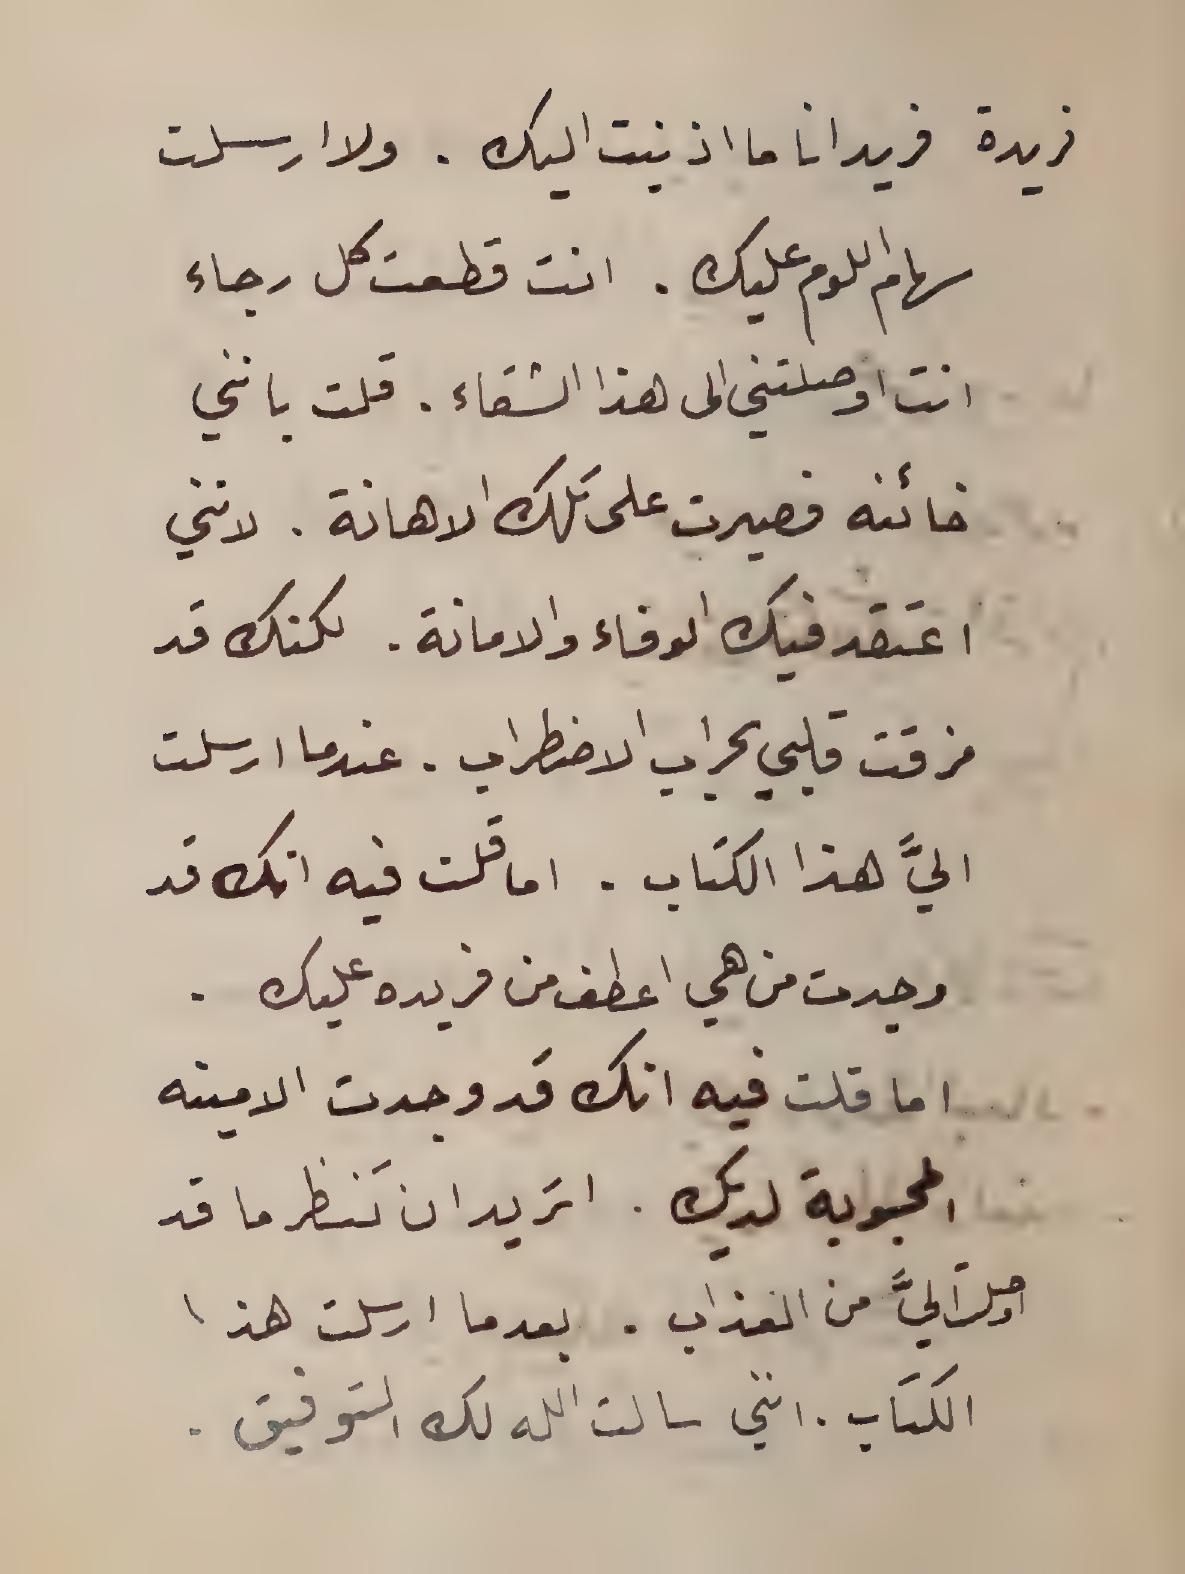 فريدة فريد انا ما اذنبت اليك . ولا ارسلت
سهام اللوم عليك . انت قطعت كل رجاء
انت اوصلتني الى هذا الشقاء . قلت بانني
خائنه فصبرت على تلك الاهانة . لانني
اعتقد فيك الوفاء والامانة . لكنك قد
مزقت قلبي بحراب الاضطراب . عندما ارسلت
اليَّ هذا الكتاب . اما قلت فيه انك قد
وجدت من هي اعطف من فريده عليك .
اما قلت فيه انك قد وجدت الامينه
المحبوبة لديك . اتريد ان تنظر ما قد
اوصلت اليَّ من العذاب . بعدما ارسلت هذا
الكتاب . انني سالت الله لك التوفيق .